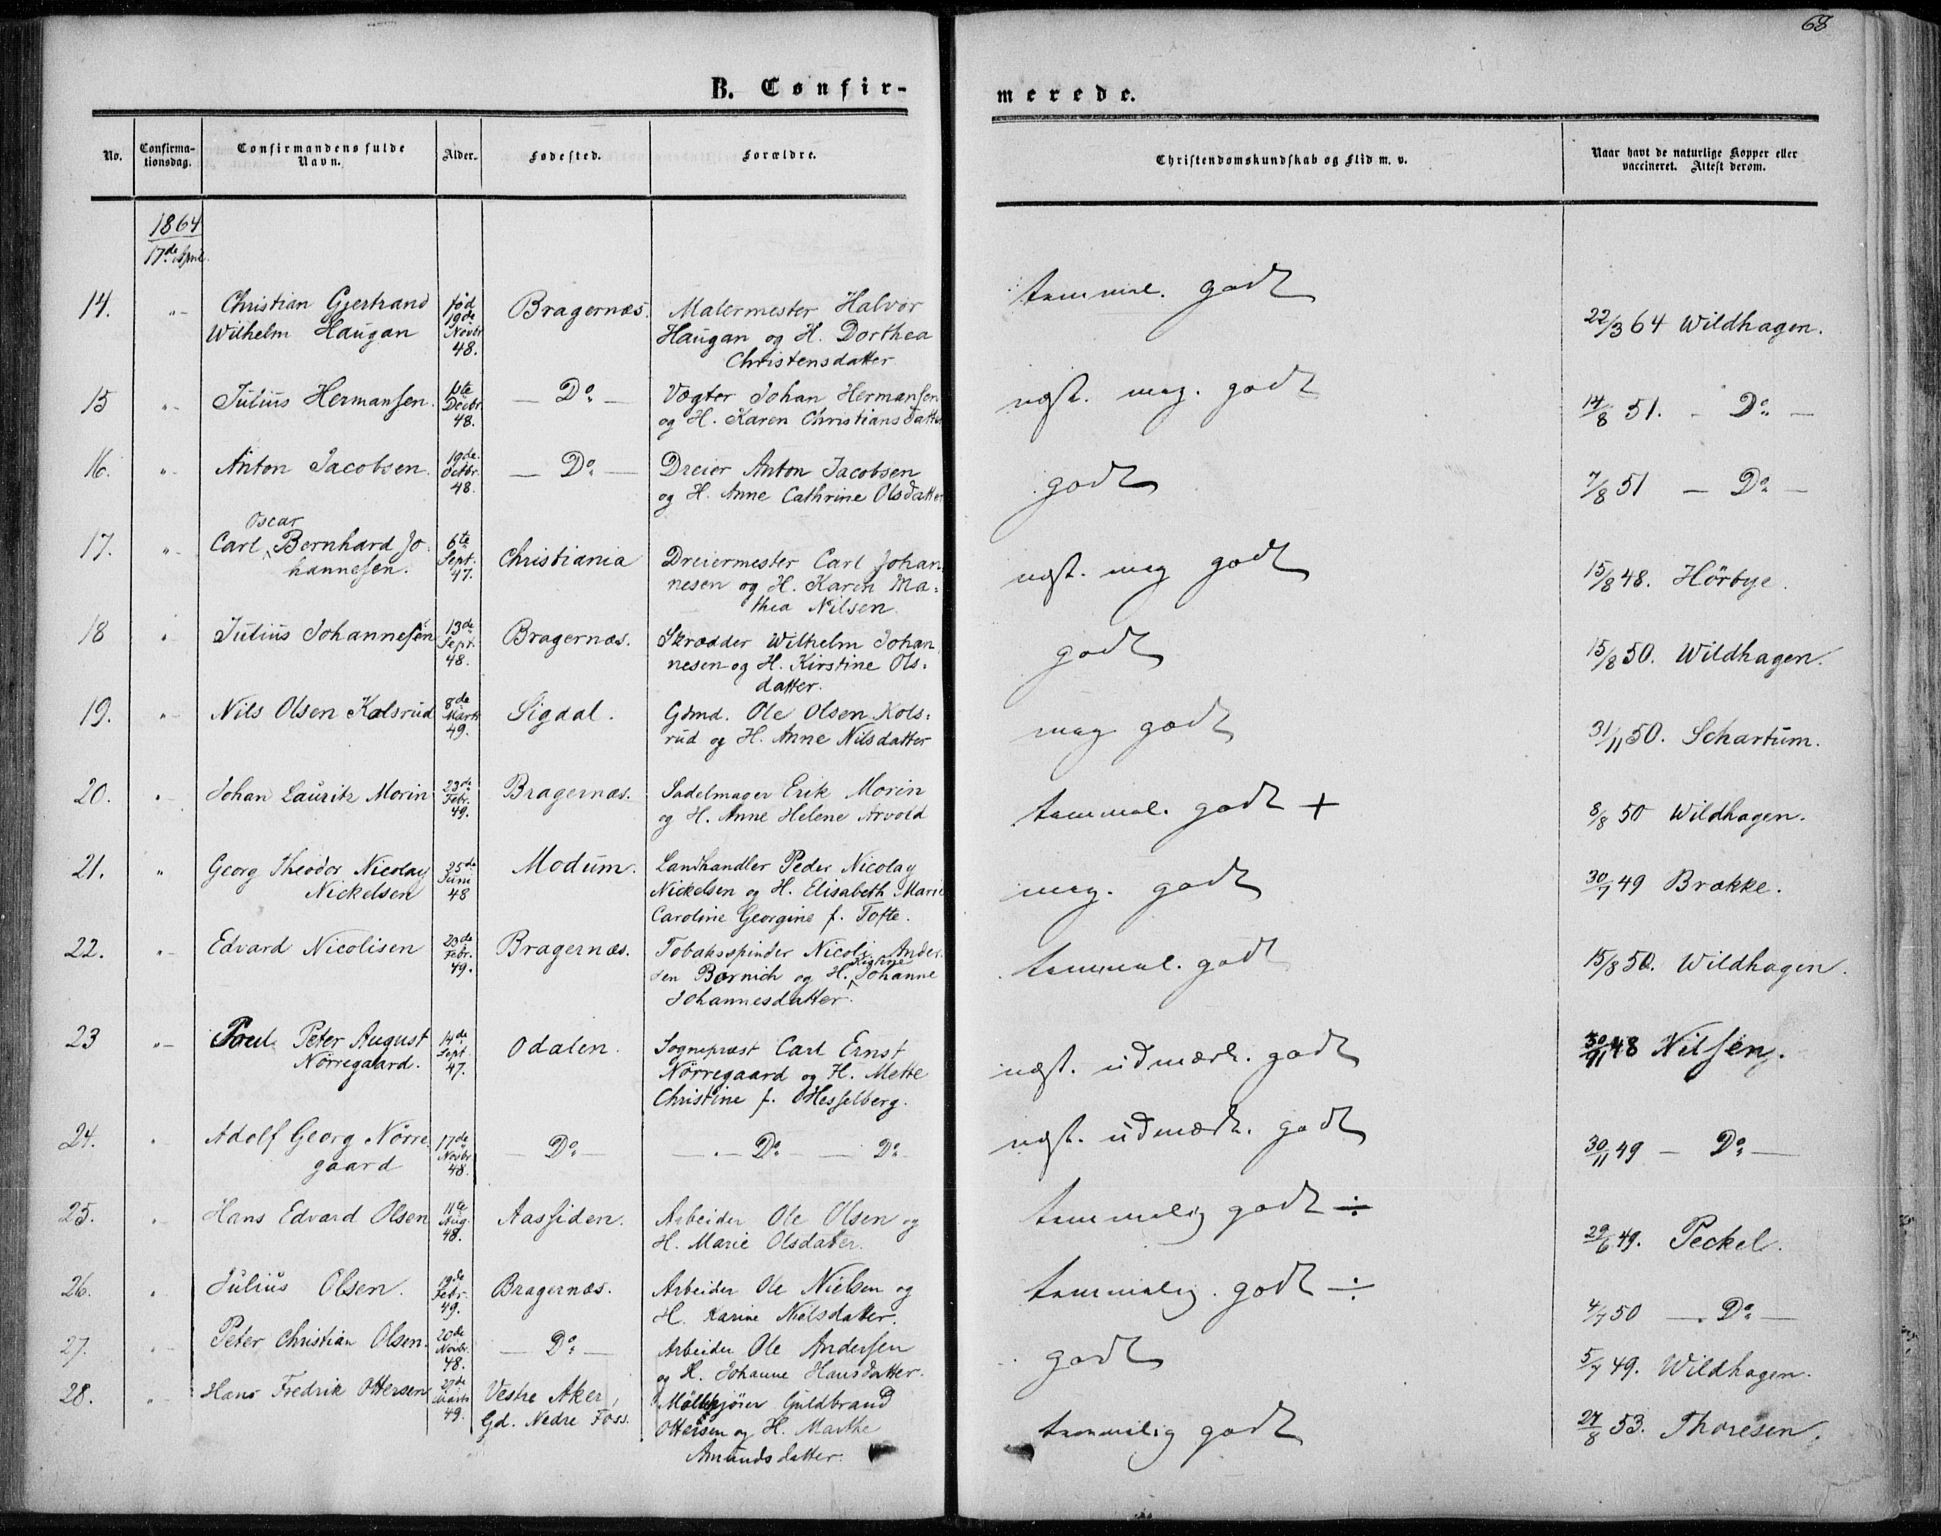 68
B. Confirmerede.
No. Confirmationsdag. Confirmandens fulde Navn. Alder. Fødested. Forældre. Christendomskundskab og Flid m. v. Naar havt de naturlige Kopper eller vaccineret. Attest derom.
1864
17de April.
14. "- Christian Gjertrand fød Bragernæs. Malermester Halvor tammel. godt 22/3 64 Wildhagen.
Wilhelm Haugan 19de Novbr Haugan og H. Dorthea
48. Christensdatter
15 "- Julius Hermansen. Decbr. — Do — Vægter Johan Hermansen næst. meg. godt 14/8 51. - Do -
48. og H. Karen Christiansdatter
16. "- Anton Jacobsen. 19de Octbr. — Do — Dreier Anton Jacobsen godt 7/8 51 — Do —
48. og H. Anne Cathrine Olsdatter
Oscar
17. "- Carl Bernhard Jo- 6te Christiania Dreiermester Carl Johan- næst. meg godt 15/8 48. Hörbye.
hannesen. Sept. 47. nesen og H. Karen Ma-
thea Nilsen.
18 " Julius Johannesen 13de Bragernæs. Skrædder Wilhelm Johan- godt 15/8 50. Wildhagen.
Sept. 48. nesen og H. Kirstine Ols-
datter.
19. "- Nils Olsen Kolsrud 8de Sigdal. Gdmd. Ole Olsen Kols- meg godt 31/11 50. Schartum.
Marts 49. rud og H. Anne Nilsdatter
20. "- Johan Lauritz Morin 23de Bragernæs. Sadelmager Erik Morin tammel. godt + 8/8 50 Wildhagen.
Febr. 49. og H. Anne Helene Arvold
21. " Georg Theodor Nicolay 25de Modum. Landhandler Peder Nicolay meg. godt 30/7 49 Brække.
Nickelsen Juni 48 Nickelsen og H. Elisabeth Marie
Caroline Georgine f. Tofte.
22. "- Edvard Nicolisen 23de Bragernæs. Tobaksspinder Nicoli Ander- tammel. godt 15/8 50. Wildhagen.
Febr. 49. sen Bornich og H. Johanne
Johannesdatter.
23 "- Poul Peter August 14de Odalen. Sognepræst Carl Ernst næst. udmærk. godt 30/11 48 Nilsen.
Nörregaard. Sept 47. Nörregaard og H. Mette
Christine f. Hesselberg.
24. " Adolf Georg Nörre- 17de — Do — — Do — — Do næst. udmærk. godt 30/11 49 — Do —
gaard Novbr 48.
25. " Hans Edvard Olsen 11te Aassiden. Arbeider Ole Olsen og tammelig godt ÷ 29/6 49. Peckel.
Aug. 48. H. Marie Olsdatter.
26. " Julius Olsen. 19de Bragernæs. Arbeider Ole Nielsen og tammelig. godt ÷ 4/7 50 — Do —
Febr. 49. H. Karine Nielsdatter.
27. " Peter Christian Olsen. 20de — Do — Arbeider Ole Andersen godt 5/7 49. Wildhagen.
Novbr. 48. og H. Johanne Hansdatter.
28. " Hans Fredrik Ottersen 27de Vestre Aker, Möllekjörer Guldbrand tammelig godt 27/8 53. Thoresen.
Marts 49. Gd. Nedre Foss. Ottersen og H. Marthe
Amundsdatter.